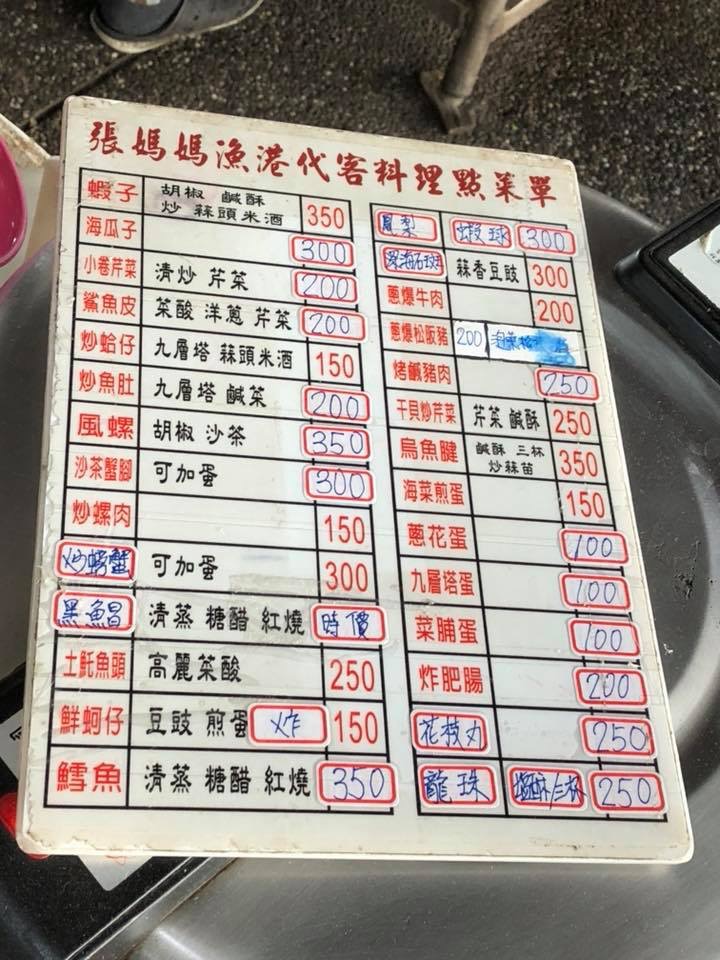 張媽媽漁港代客料理點菜單
蝦子 胡椒 鹹酥 炒 蒜頭米酒 350
海瓜子 300
小卷芹菜 清炒 芹菜 200
鯊魚皮 菜酸 洋蔥 芹菜 200
炒蛤仔 九層塔 蒜頭米酒 150
炒魚肚 九層塔 鹹菜 200
風螺 胡椒 沙茶 350
沙茶蟹腳 可加蛋 300
炒螺肉 150
炒螃蟹 可加蛋 300
黑魚昌 清蒸 糖醋 紅燒 時價
土魠魚頭 高麗菜酸 250
鮮蚵仔 豆豉 煎蛋 炸 150
鱈魚 清蒸 糖醋 紅燒 350
鳳梨 蝦球 300
深海石斑 蒜香豆豉 300
蔥爆牛肉 200
蔥爆松阪豬 200
烤鹹豬肉 250
干貝炒芹菜 芹菜 鹹酥 250
烏魚腱 鹹酥 三杯 炒蒜苗 350
海菜煎蛋 150
蔥花蛋 100
九層塔蛋 100
菜脯蛋 100
炸肥腸 200
花枝丸 250
龍珠 鹽酥/三杯 250